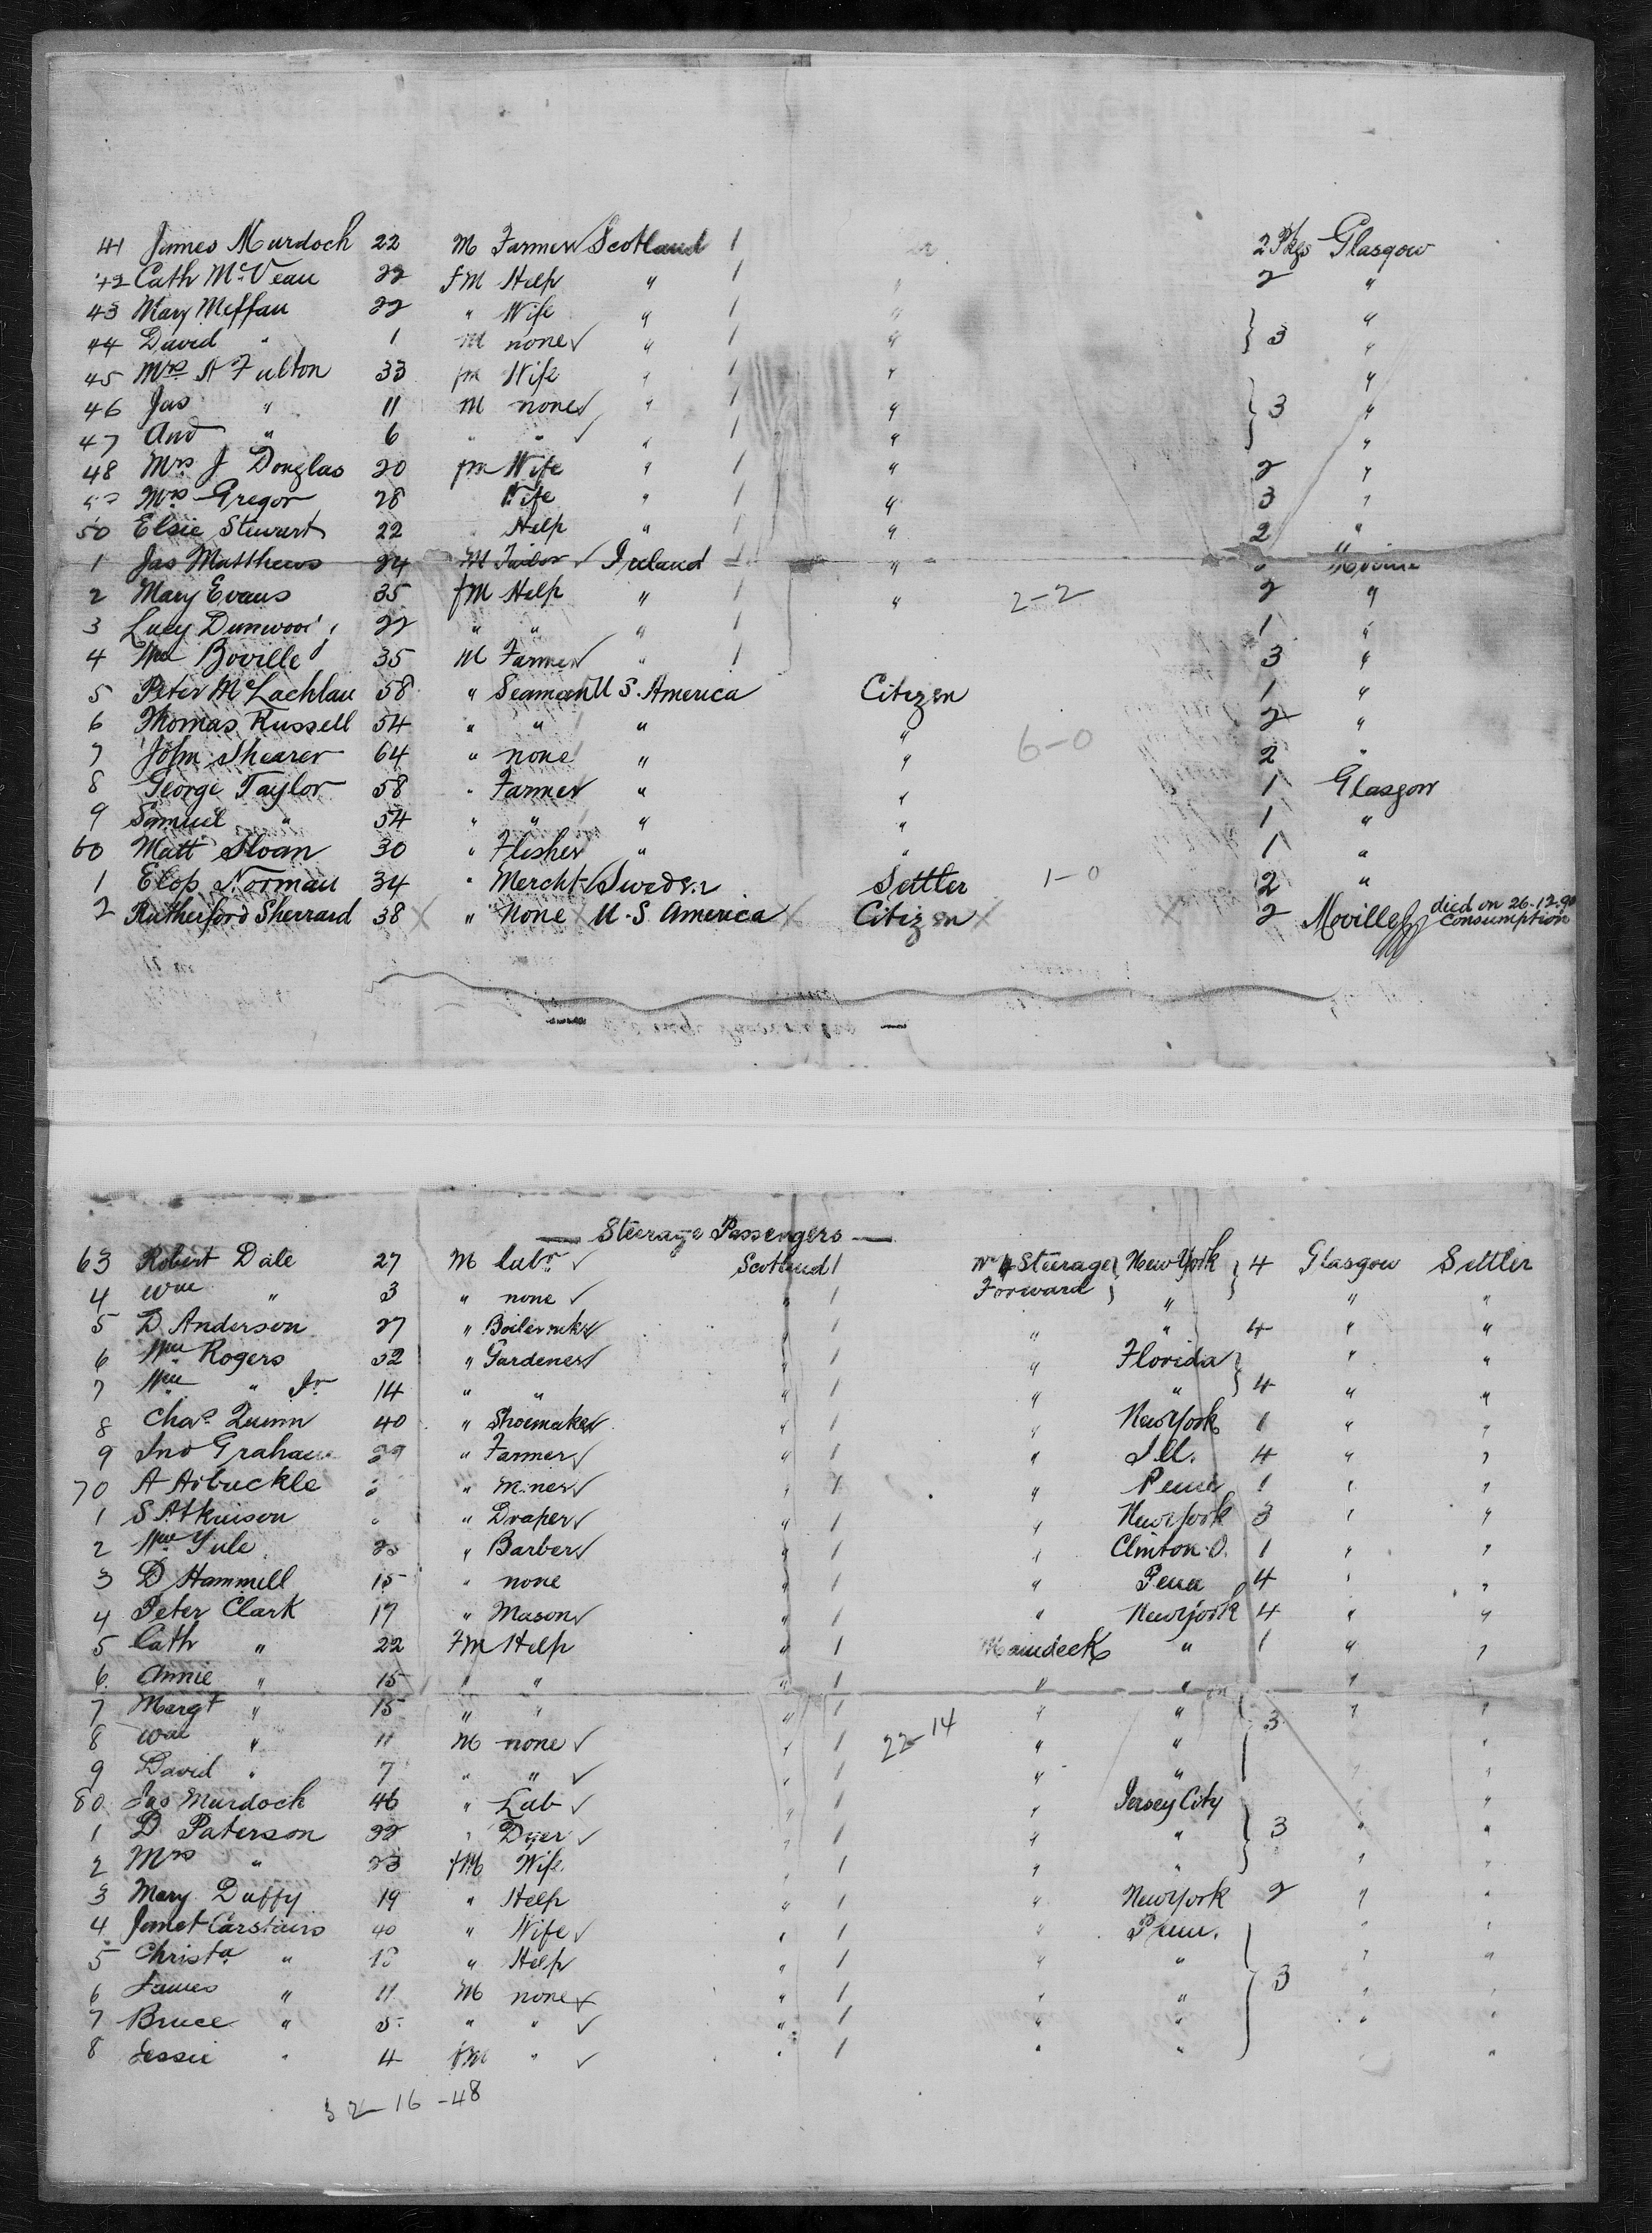 41 James Murdoch 22 M Farmer Scotland 1 " 2 Pkgs Glasgow
42 Cath McVean 22 fM Help " 1 " 2 "
43 Mary Meffan 22 " Wife " 1 " "
44 David " 1 M none " 1 " } 3 "
45 Mrs A Fulton 33 fm Wife " 1 " "
46 Jas " 11 M none " 1 " } 3 "
47 And " 6 " " " 1 " "
48 Mrs J Douglas 20 fm Wife " 1 " 2 "
Mrs Gregor 28 Wife " 1 " 3 "
50 Elsie Stewart 22 Help " 1 " 2 "
1 Jas Matthews 24 M Tailor Ireland 1 " Moville
2 Mary Evans 35 fM Help " 1 " 2-2 2 "
3 Lucy 22 " " " 1 1 "
4 Wm Boville 35 M Farmer " 1 3 "
5 Peter McLachlan 58 " Seaman U S. America Citizen 1 "
6 Thomas Russell 54 " " " " 2 "
7 John Shearer 64 " none " " 6-0 2 "
8 George Taylor 58 " Farmer " " 1 Glasgow
9 Samuel " 54 " " " " 1 "
60 Matt Sloan 30 " Flesher " " 1 "
1 Norman 34 " Mercht Sweden Settler 1-0 2 "
2 Rutherford Sherrard 38 " None U.S. America Citizen 2 Moville died on 26.12.90 Consumption
— Steerage Passengers —
63 Robert Dale 27 M Labr Scotland 1 No 4 Steerage Forward } New York } 4 Glasgow Settler
4 Wm " 3 " none " 1 " " "
5 D. Anderson 27 " Boilermkr " 1 " " 4 " "
6 Wm Rogers 52 " Gardener " 1 " Florida } " "
7 Wm " Jr 14 " " " 1 " " 4 " "
8 Chas Quinn 40 " Shoemaker " 1 " New York 1 " "
9 Jno Graham " Farmer " 1 " Ill. 4 " "
70 A Arbuckle " Miner " 1 " Penn 1 " "
1 S. Atkinson " Draper " 1 " New York 3 " "
2 Wm Yule " Barber " 1 " Clinton O. 1 " "
3 D Hammill 15 " none " 1 " Penn 4 " "
4 Peter Clark 17 " Mason " 1 " New York 4 " "
5 Cath " 22 FM Help " 1 Maindeck " 1 " "
6 Annie " 15 " " " 1 " " "
7 Margt " 15 " " " 1 " " } 3 " "
8 Wm " 11 M none " 1 22-14 " " "
9 David " 7 " " " 1 " " " "
80 Jas Murdoch 46 " Lab " 1 " Jersey City "
1 D. Paterson 22 " Dyer " 1 " " } 3 " "
2 Mrs " 23 fM Wife " 1 " " " "
3 Mary Duffy 19 " Help " 1 " New York 2 " "
4 Janet Carstairs 40 " Wife " 1 " Penn. " "
5 Christa " 18 " Help " 1 " " " "
6 James " 11 M none " 1 " " } 3 " "
7 Bruce " 5 " " " 1 " " " "
8 Jessie " 4 fM " " 1 " " "
32-16-48